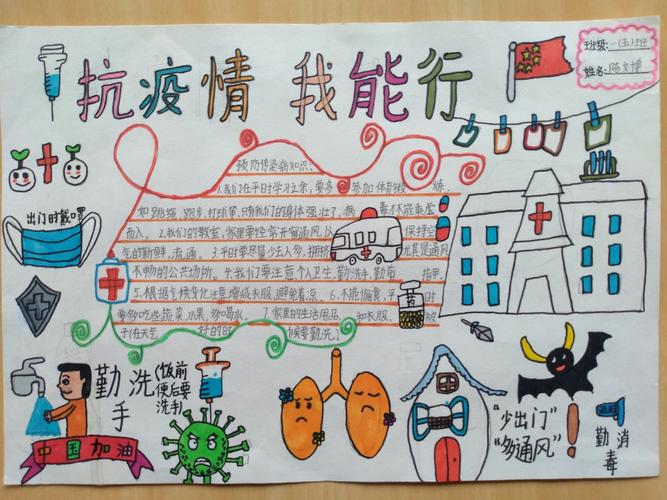 抗疫情 我能行
班级:一(五)班
姓名:陈文博
出门时戴口罩
预防传染病知识:
1.我们在平时学习之余,要多参加体育锻炼,
如跳绳、跑步,打球等,
我们的身体强壮了,病毒才不能乘虚
而入。2.我们的教室、家里要经常开窗通风,以保持空
气的新鲜,流通。3.平时要尽量少去人多,拥挤尤其是通风
不畅的公共场所。4.我们要注意个人卫生,勤洗手,勤剪指甲。
5.根据气候变化注意增减衣服,避免着凉。6.不能偏食,平时
要多吃些蔬菜,水果,多喝水。7.家里的生活用品,和衣服、被
子(在天气好的时候要勤洗)
药
勤洗手
(饭前便后要洗手)
中国加油
“少出门”
“多通风”
勤消毒